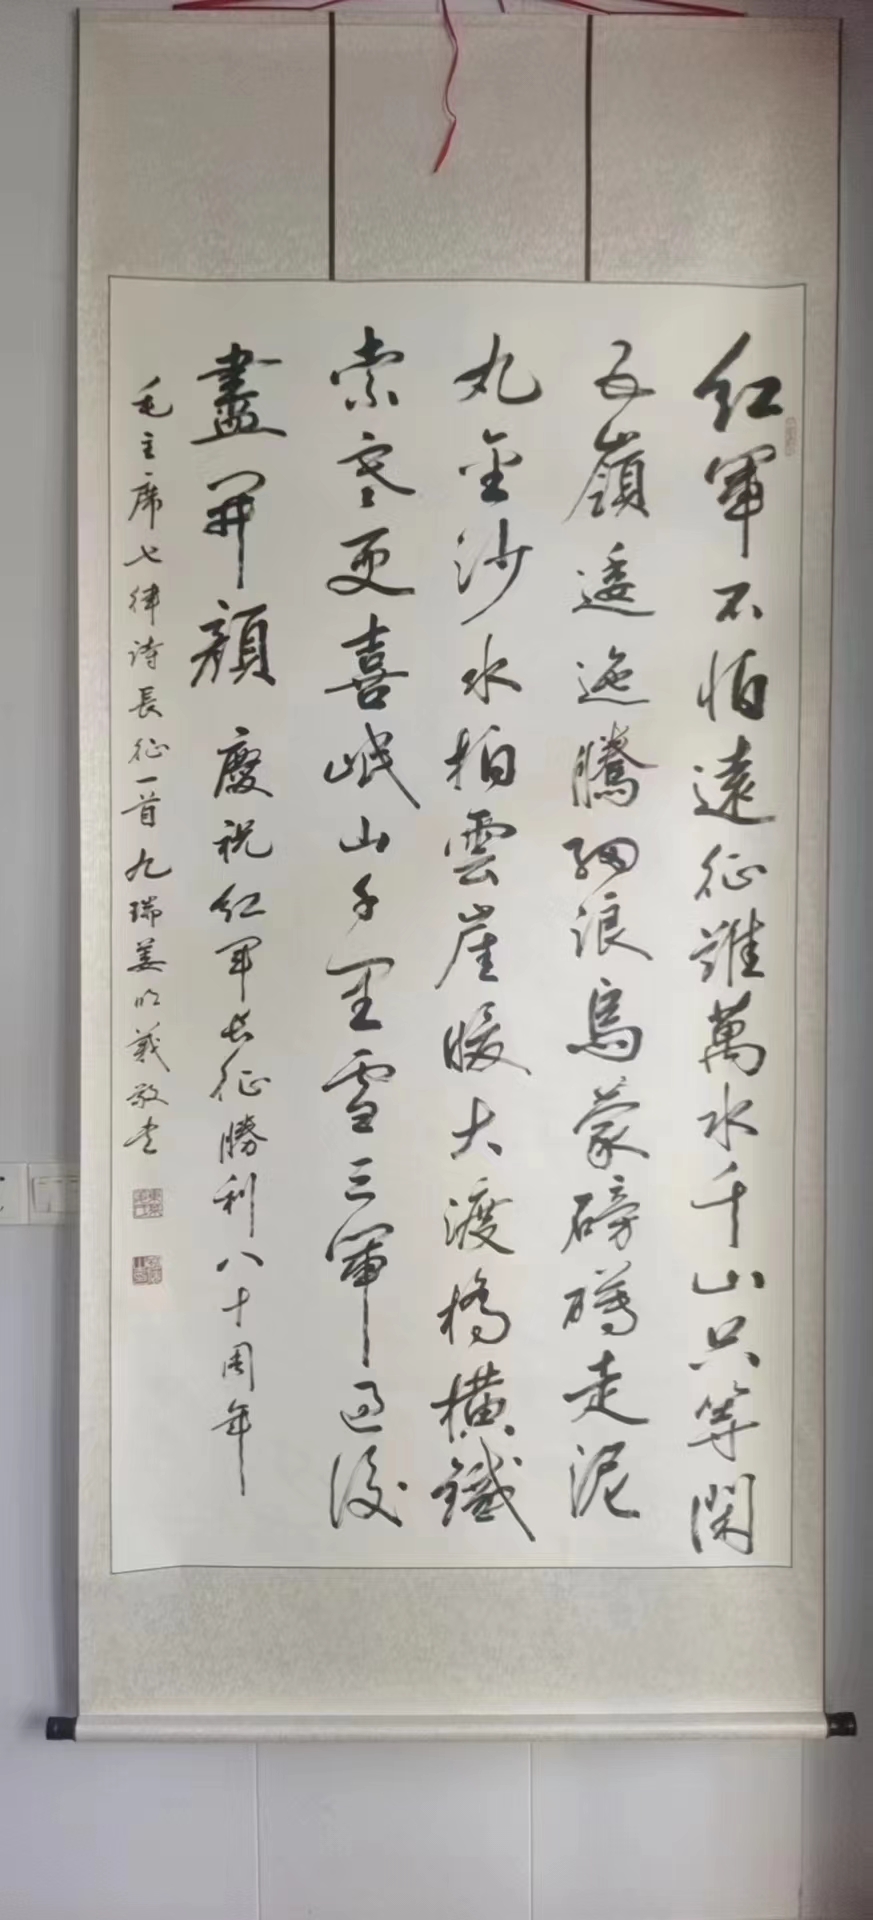 红軍不怕遠征難萬水千山只等閑
五嶺逶迤騰細浪烏蒙磅礴走泥
丸金沙水拍雲崖暖大渡橋横鐵
索寒更喜岷山千里雪三軍過後
盡開顔 慶祝红軍长征勝利八十周年
毛主席七律诗長征一首 九瑞姜明義敬书